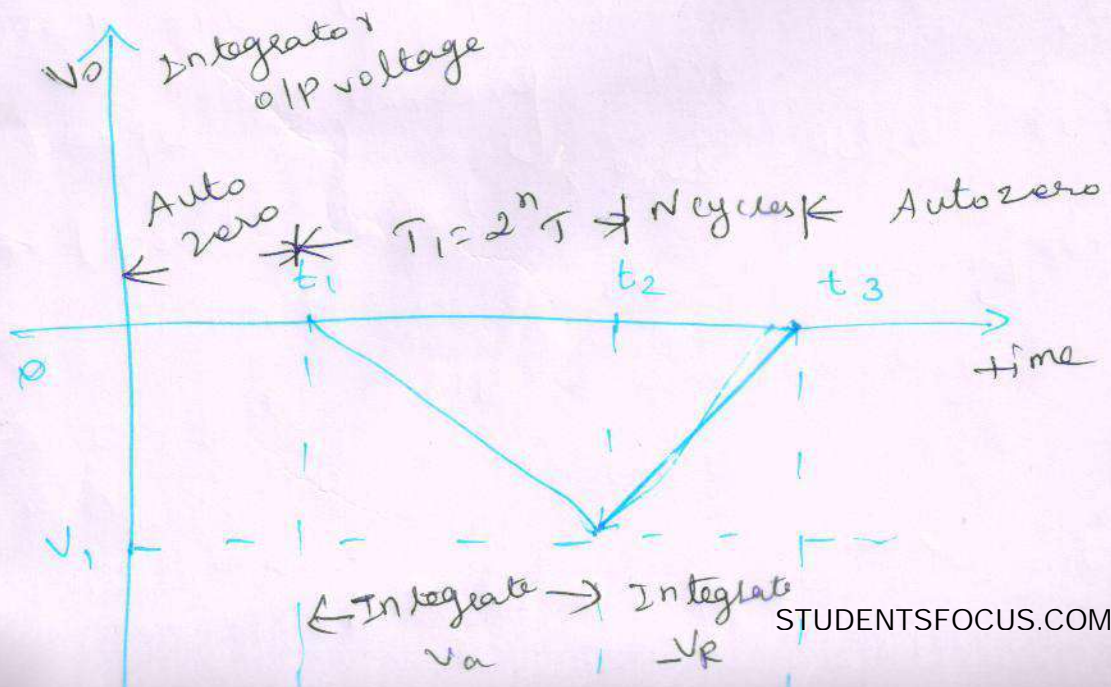 Vo Integrator
o/p voltage
Auto
zero
T1 = 2^n T N cycles Autozero
t1 t2 t3
0
time
V1
Integrate Integrate
Va -VR
STUDENTSFOCUS.COM